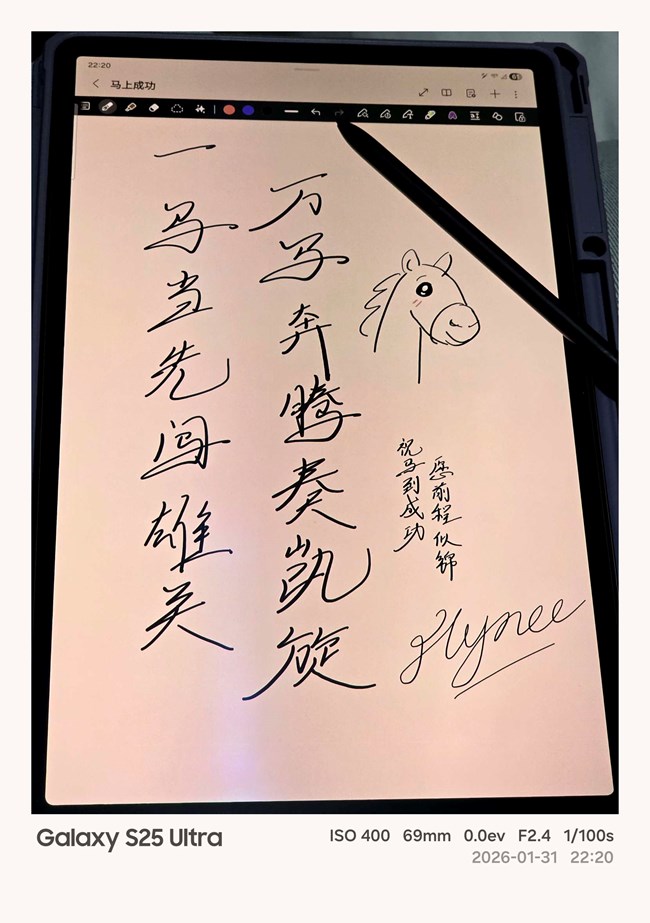 22:20
马上成功
一马当先闯雄关
万马奔腾奏凯旋
祝马到成功
愿前程似锦
Hynee
Galaxy S25 Ultra
ISO 400 69mm 0.0ev F2.4 1/100s
2026-01-31 22:20